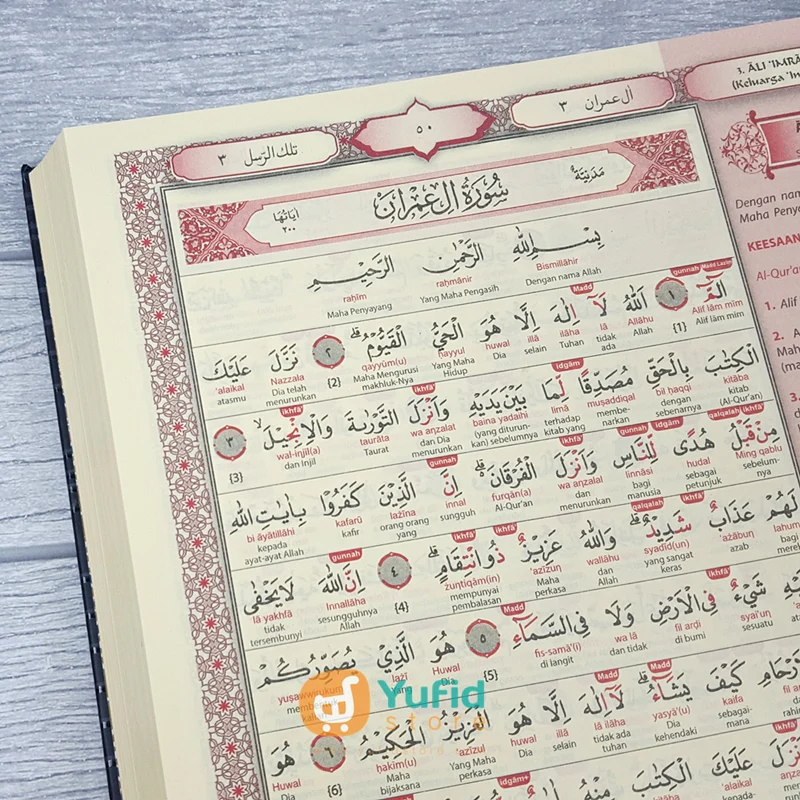 تلك الرسل ٣
٥٠
آل عمران ٣
3. ĀLI 'IMRĀ
(Keluarga 'Im
مدنية
سورة آل عمران
اياتها ٢٠٠
بسم الله الرحمن الرحيم
Bismillāhir raḥmānir raḥīm
Dengan nama Allah Yang Maha Pengasih Maha Penyayang
gunnah Mad Lazim Madd
الٓمّٓ ١ اللّٰهُ لَآ اِلٰهَ اِلَّا هُوَ الْحَيُّ الْقَيُّوْمُۗ ٢ نَزَّلَ عَلَيْكَ
Alif lām mīm Allāhu lā ilāha illā huwal ḥayyul qayyūm(u) Nazzala 'alaikal
Alif lām mīm {1} Allah tidak ada Tuhan selain Dia Yang Maha Hidup Maha Mengurusi makhluk-Nya {2} Dia telah menurunkan atasmu
idgām ikhfā' ikhfā'
الْكِتٰبَ بِالْحَقِّ مُصَدِّقًا لِّمَا بَيْنَ يَدَيْهِ وَاَنْزَلَ التَّوْرٰىةَ وَالْاِنْجِيْلَۙ ٣
kitāba bil ḥaqqi muṣaddiqal limā baina yadaihi wa anzalat taurāta wal-injīl(a)
kitab (Al-Qur'an) dengan sebenarnya membe-narkan terhadap kitab yang (yang diturun-kan) sebelumnya dan Dia menurunkan Taurat dan Injil {3}
qalqalah ikhfā' idgām gunnah ikhfā' gunnah
مِنْ قَبْلُ هُدًى لِّلنَّاسِ وَاَنْزَلَ الْفُرْقَانَۗ اِنَّ الَّذِيْنَ كَفَرُوْا بِاٰيٰتِ اللّٰهِ
Ming qablu hudal linnāsi wa anzalal furqān(a) innal lażīna kafarū bi āyātillāhi
sebelum-nya sebagai petunjuk bagi manusia dan menurunkan Al-Qur'an sungguh orang orang yang kafir kepada ayat-ayat Allah
qalqalah ikhfā' ikhfā' ikhfā' gunnah
لَهُمْ عَذَابٌ شَدِيْدٌۗ وَاللّٰهُ عَزِيْزٌ ذُو انْتِقَامٍۗ ٤ اِنَّ اللّٰهَ لَا يَخْفٰى
lahum 'ażābun syadīd(un) wallāhu 'azīzun żuntiqām(in) Innallāha lā yakhfā
azab yang sangat keras dan Allah Maha perkasa mempunyai pembalasan {4} sesungguhnya Allah tidak tersembunyi
ikhfā' Madd
شَيْءٌ فِى الْاَرْضِ وَلَا فِى السَّمَاۤءِ ٥ هُوَ الَّذِيْ يُصَوِّرُكُمْ
syai'un fil arḍi wa lā fis-samā'(i) Huwal lażī yuṣawwirukum
sesuatu di bumi dan tidak di langit {5} Dia Yang
Madd Madd
كَيْفَ يَشَاۤءُ لَآ اِلٰهَ اِلَّا هُوَ الْعَزِيْزُ الْحَكِيْمُ ٦ هُوَ
kaifa yasyā'(u) lā ilāha illā huwal 'azīzul ḥakīm(u) Huwal
sebagai-mana Dia kehendaki tidak ada tuhan selain Dia Yang Maha perkasa Maha bijaksana {6} Dia
ikhfā' idgām+
عَلَيْكَ الْكِتٰبَ مِنْهُ
Dengan nam
Maha Penya
KEESAAN
Al-Qur'a
1. Alif
2.
3.
Yufid
store